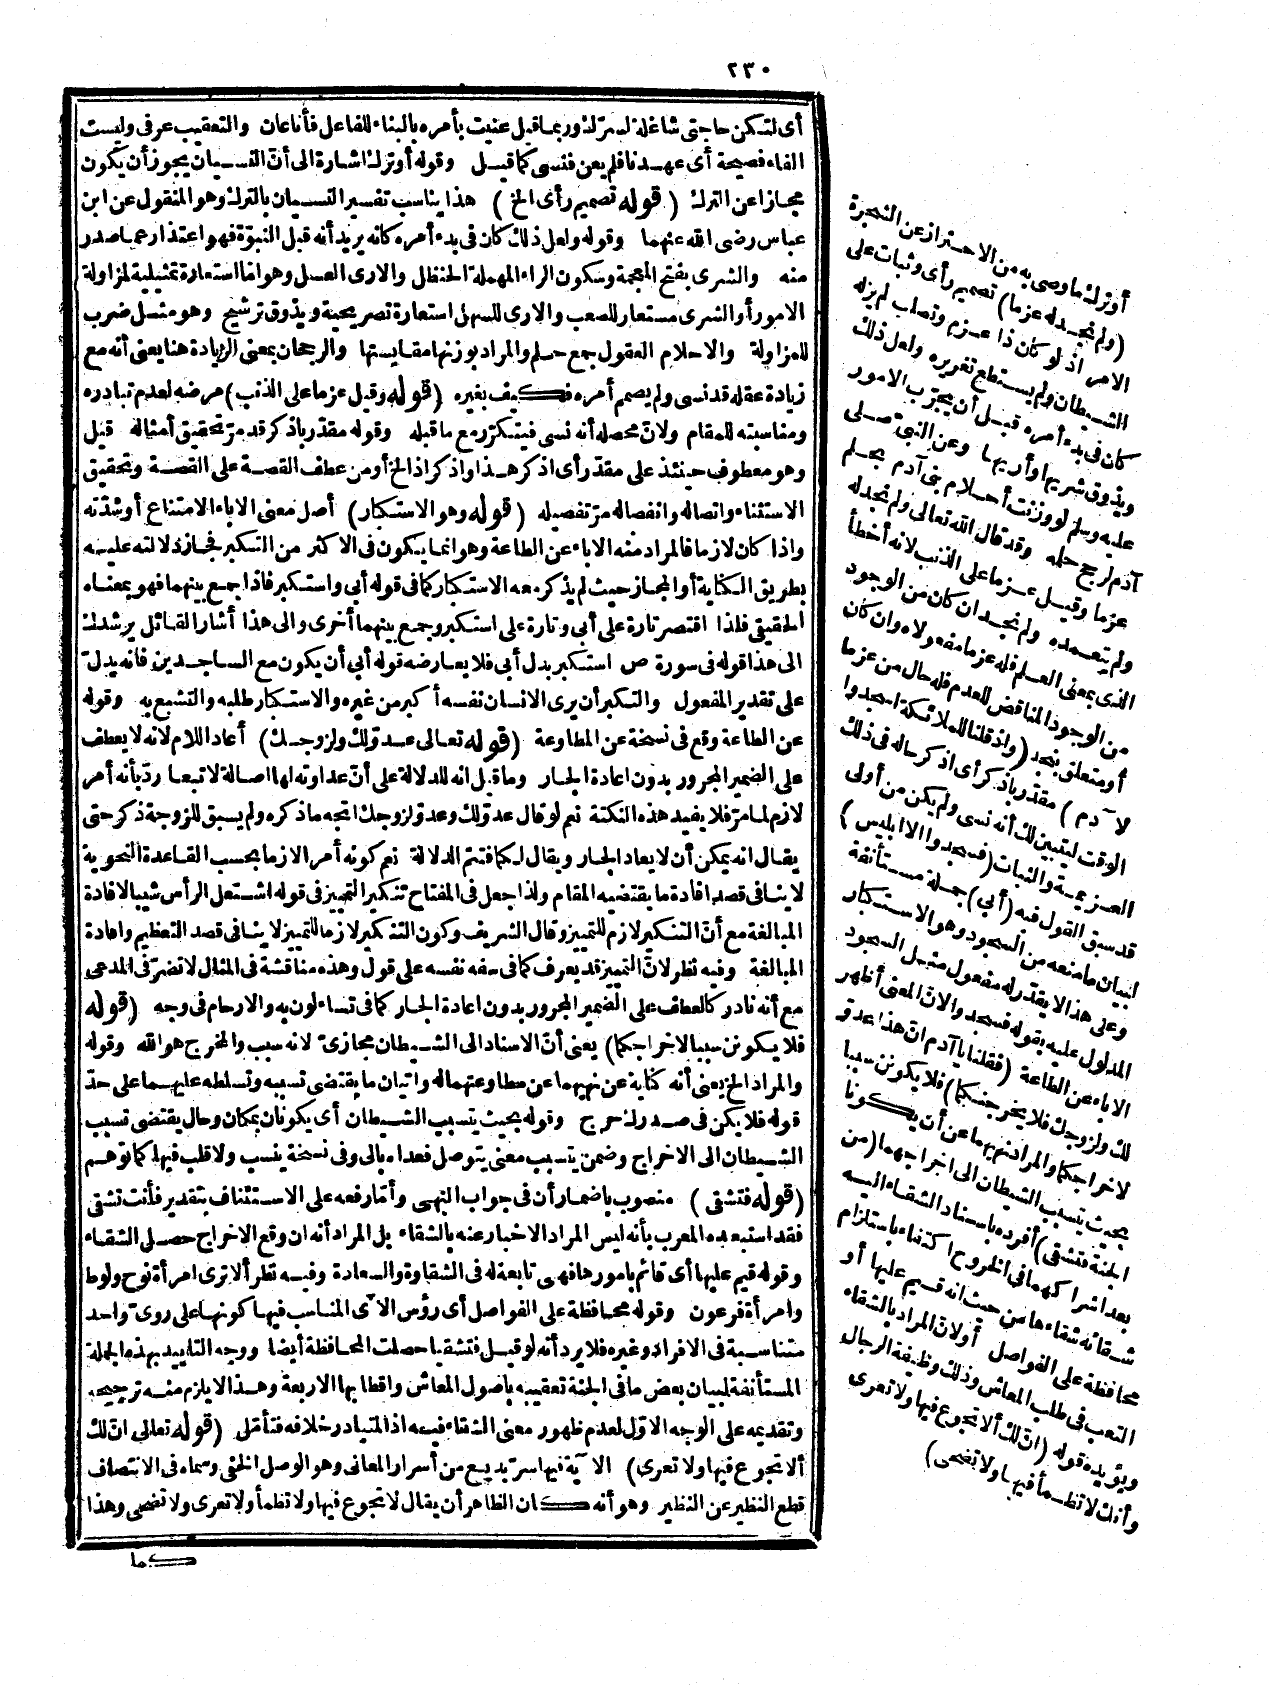 ٢٣٠
أى لتكن حاجتى شاغلة لسرّك وربما قيل عنيت بأمره بالبناء للفاعل فأناعان والتعقيب عرفى وليست
الفاء فصيحة أى عهدنا فلم يعن فنسى كما قيل وقوله أوترك اشارة الى أنّ النسيان يجوز أن يكون
مجازا عن الترك (قوله تصميم رأى الخ) هذا يناسب تفسير النسيان بالترك وهو المنقول عن ابن
عباس رضى الله عنهما وقوله ولعل ذلك كان فى بدء أمره كانه يريد أنه قبل النبوّة فهو اعتذار عما صدر
منه والشرى بفتح المعجمة وسكون الراء المهملة الحنظل والارى العسل وهو امّا استعارة تمثيلية لمزاولة
الامور أو الشرى مستعار للصعب والارى للسهل استعارة تصريحية ويذوق ترشيح وهو مثل ضرب
للمزاولة والاحلام العقول جمع حلم والمراد بوزنها مقايستها والرجحان بمعنى الزيادة هنا يعنى أنه مع
زيادة عقله قد نسى ولم يصمم أمره فكيف بغيره (قوله وقيل عزما على الذنب) مرضه لعدم تبادره
ومناسبته للمقام ولانّ محصله أنه نسى فيتكرّر مع ما قبله وقوله مقدّر باذكر قد مرّ تحقيق أمثاله قيل
وهو معطوف حينئذ على مقدّر أى اذكر هذا واذكر اذ الخ أو من عطف القصة على القصة وتحقيق
الاستثناء واتصاله وانفصاله مرّ تفصيله (قوله وهو الاستكبار) أصل معنى الاباء الامتناع أو شدّته
واذا كان لازما فالمراد منه الاباء عن الطاعة وهو انما يكون فى الاكثر من التكبر فجاز دلالته عليه
بطريق الكناية أو المجاز حيث لم يذكر معه الاستكبار كما فى قوله أبى واستكبر فاذا جمع بينهما فهو بمعناه
الحقيقى فلذا اقتصر تارة على أبى وتارة على استكبر وجمع بينهما أخرى والى هذا أشار القائل يرشدك
الى هذا قوله فى سورة ص استكبر بدل أبى فلا يعارضه قوله أبى أن يكون مع الساجدين فانه يدلّ
على تقدير المفعول والتكبر أن يرى الانسان نفسه أكبر من غيره والاستكبار طلبه والتشبع به وقوله
عن الطاعة وقع فى نسخة عن المطاوعة (قوله تعالى عدوّلك ولزوجك) أعاد اللام لانه لا يعطف
على الضمير المجرور بدون اعادة الجار وما قيل انه للدلالة على أنّ عداوته لها اصالة لا تبعا ردّ بأنه أمر
لازم لما مرّ فلا يفيد هذه النكتة نعم لو قال عدوّلك وعدوّلزوجك اتجه ما ذكره ولم يسبق للزوجة ذكر حتى
يقال انه يمكن أن لا يعاد الجار ويقال لكما فتتم الدلالة نعم كونه أمرا لازما بحسب القاعدة النحوية
لا ينافى قصد افادة ما يقتضيه المقام ولذا جعل فى المفتاح تنكير التمييز فى قوله اشتعل الرأس شيبا لافادة
المبالغة مع أنّ التنكير لازم للتمييز وقال الشريف وكون التنكير لازما للتمييز لا ينافى قصد التعظيم وافادة
المبالغة وفيه نظر لانّ التمييز قد يعرف كما فى سفه نفسه على قول وهذه مناقشة فى المثال لا تضرّ فى المدعى
مع أنه نادر كالعطف على الضمير المجرور بدون اعادة الجار كما فى تساءلون به والارحام فى وجه (قوله
فلا يكونن سببا لاخراجكما) يعنى أنّ الاسناد الى الشيطان مجازىّ لانه سبب والمخرج هو الله وقوله
والمراد الخ يعنى أنه كناية عن نهيهما عن مطاوعتهما له واتيان ما يقتضى تسببه وتسلطه عليهما على حدّ
قوله فلا يكن فى صدرك حرج وقوله بحيث يتسبب الشيطان أى يكونان بمكان وحال يقتضى تسبب
الشيطان الى الاخراج وضمن يتسبب معنى يتوصل فعداه بالى وفى نسخة ينسب ولا قلب فيها كما توهم
(قوله فتشقى) منصوب باضمار أن فى جواب النهى وأمّا رفعه على الاستئناف بتقدير فأنت تشقى
فقد استبعده المعرب بأنه ليس المراد الاخبار عنه بالشقاء بل المراد أنه ان وقع الاخراج حصل الشقاء
وقوله قيم عليها أى قائم بامورها فهى تابعة له فى الشقاوة والسعادة وفيه نظر ألا ترى امرأة نوح ولوط
وامرأة فرعون وقوله محافظة على الفواصل أى رؤس الآى المناسب فيها كونها على روىّ واحد
متناسبة فى الافراد وغيره فلا يرد أنه لو قيل فتشقيا حصلت المحافظة أيضا ووجه التاييد بهذه الجملة
المستأنفة لبيان بعض ما فى الجنة تعقيبه باصول المعاش واقطابها الاربعة وهذا لا يلزم منه ترجيحه
وتقديمه على الوجه الاوّل لعدم ظهور معنى الشقاء فيه اذ المتبادر خلافه فتأمّل (قوله تعالى انّ لك
ألا تجوع فيها ولا تعرى) الآية فيها سرّ بديع من أسرار المعانى وهو الوصل الخفى وسماه فى الانتصاف
قطع النظير عن النظير وهو أنه كان الظاهر أن يقال لا تجوع فيها ولا تظمأ ولا تعرى ولا تضحى وهذا
كما
أو ترك ما وصى به من الاحتراز عن الشجرة
(ولم نجد له عزما) تصميم رأى وثبات على
الامر اذ لو كان ذا عزم وتصلب لم يزله
الشيطان ولم يستطع تغريره ولعل ذلك
كان فى بدء أمره قبل أن يجرّب الامور
ويذوق شريها وأريها وعن النبىّ صلى
عليه وسلم لو وزنت أحلام بنى آدم بحلم
آدم لرجح حلمه وقد قال الله تعالى ولم نجد له
عزما وقيل عزما على الذنب لانه أخطأ
ولم يتعمده ولم نجد ان كان من الوجود
الذى بمعنى العلم فله عزما مفعولاه وان كان
من الوجود المناقض للعدم فله حال من عزما
أو متعلق بنجد (واذ قلنا للملائكة اسجدوا
لآدم) مقدّر باذكر أى اذكر حاله فى ذلك
الوقت ليتبين لك أنه نسى ولم يكن من أولى
العزيمة والثبات (فسجدوا الا ابليس)
قد سبق القول فيه (أبى) جملة مستأنفة
لبيان ما منعه من السجود وهو الاستكبار
وعلى هذا لا يقدّر له مفعول مثل السجود
المدلول عليه بقوله فسجدوا لانّ المعنى أظهر
الاباء عن الطاعة (فقلنا يا آدم انّ هذا عدوّ
لك ولزوجك فلا يخرجنكما) فلا يكونن سببا
لاخراجكما والمراد نهيهما عن أن يكونا
بحيث يتسبب الشيطان الى اخراجهما (من
الجنة فتشقى) أفرده باسناد الشقاء اليه
بعد اشراكهما فى الخروج اكتفاء باستلزام
شقائه شقاءها من حيث انه قيم عليها أو
محافظة على الفواصل أو لانّ المراد بالشقاء
التعب فى طلب المعاش وذلك وظيفة الرجال
ويؤيده قوله (انّ لك ألا تجوع فيها ولا تعرى
وأنك لا تظمأ فيها ولا تضحى)